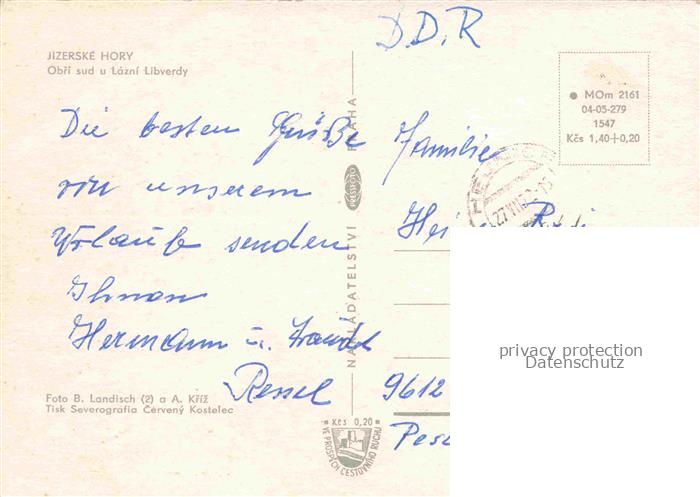 JIZERSKÉ HORY
Obří sud u Lázní Libverdy
D.D.R
● MOm 2161
04-05-279
1547
Kčs 1,40+0,20
Die besten Grüße
von unserem
Urlaub senden
Ihnen
Hermann u. Traudl
Ressel
Familie
9612
NAKLADATELSTVÍ PRESSFOTO PRAHA
privacy protection
Datenschutz
Foto B. Landisch (2) a A. Kříž
Tisk Severografia Červený Kostelec
Kčs 0,20
VE PROSPĚCH CESTOVNÍHO RUCHU